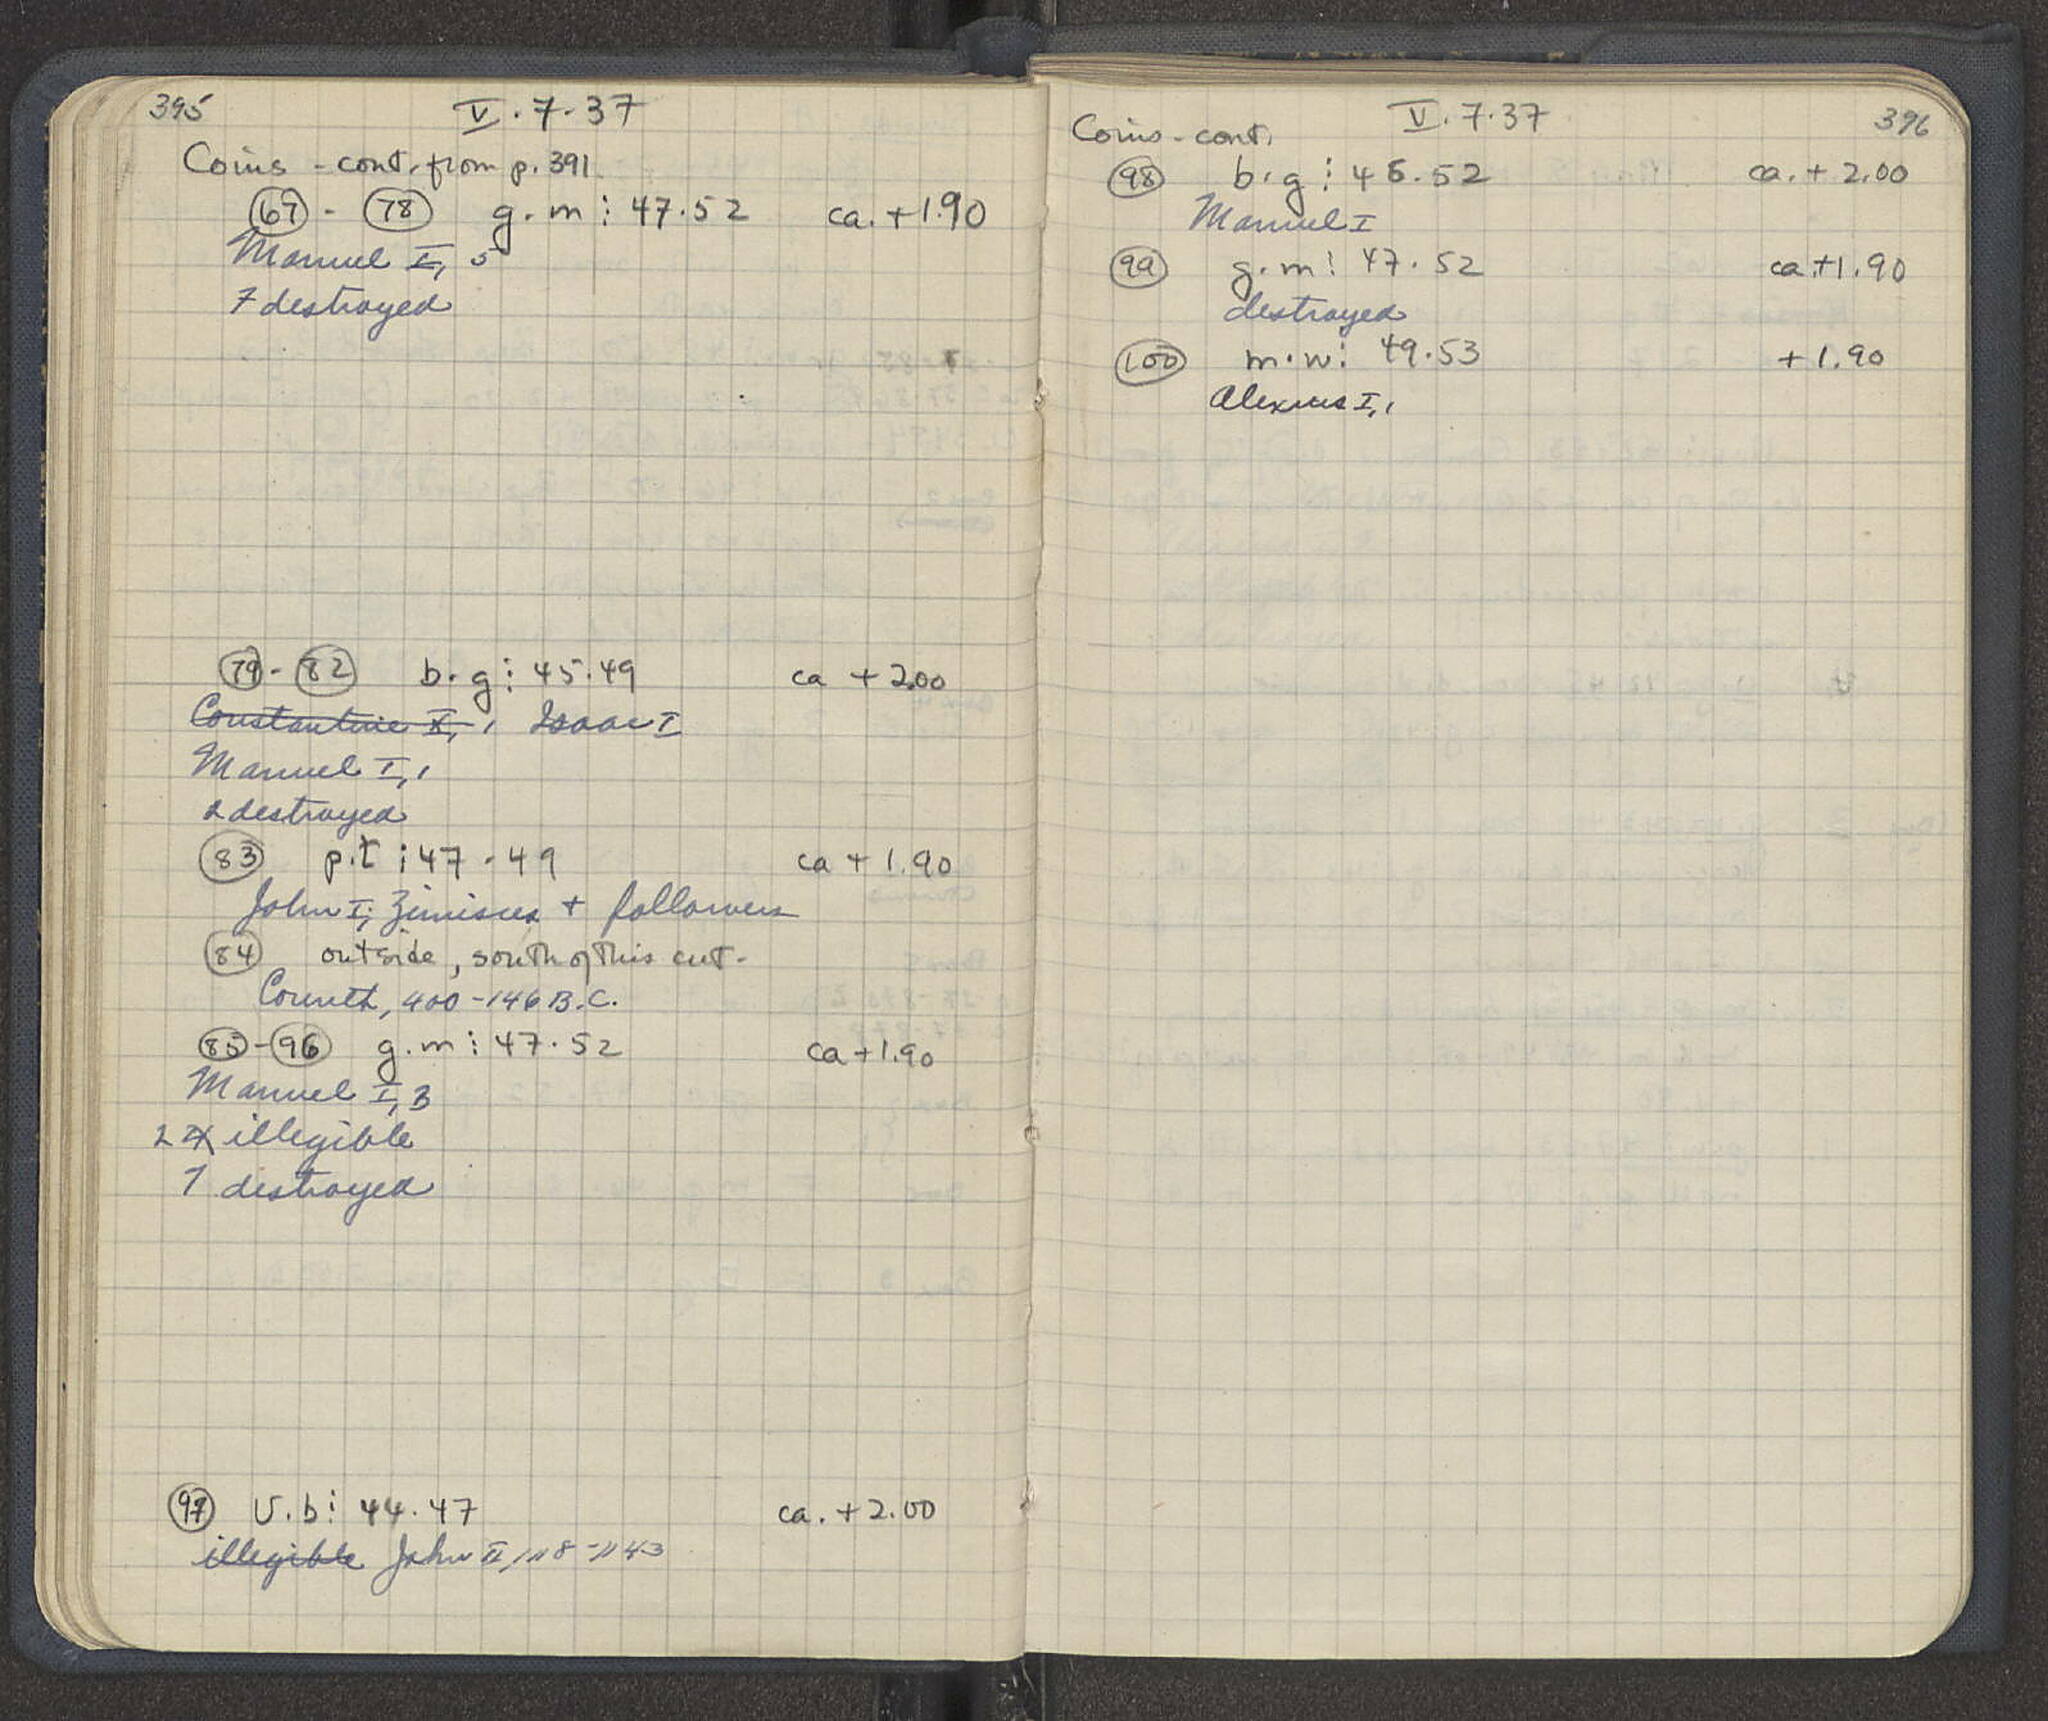 395
V.7.37
Coins - cont. from p. 391
67 - 78 g.m: 47.52 ca. +1.90
Manuel I, 5
7 destroyed
79 - 82 b.g: 45.49 ca +2.00
Constantine X, 1 Isaac I
Manuel I, 1
2 destroyed
83 p.t: 47-49 ca +1.90
John I, Zimisces + followers
84 outside, south of this cut.
Corinth, 400-146 B.C.
85 - 96 g.m: 47.52 ca +1.90
Manuel I, 3
2 illegible
7 destroyed
97 U.b: 44.47 ca. +2.00
illegible John II, 1118-1143
V.7.37
396
Coins - cont.
98 b.g: 45.52 ca. +2.00
Manuel I
99 g.m: 47.52 ca +1.90
destroyed
100 m.w: 49.53 +1.90
Alexius I, 1